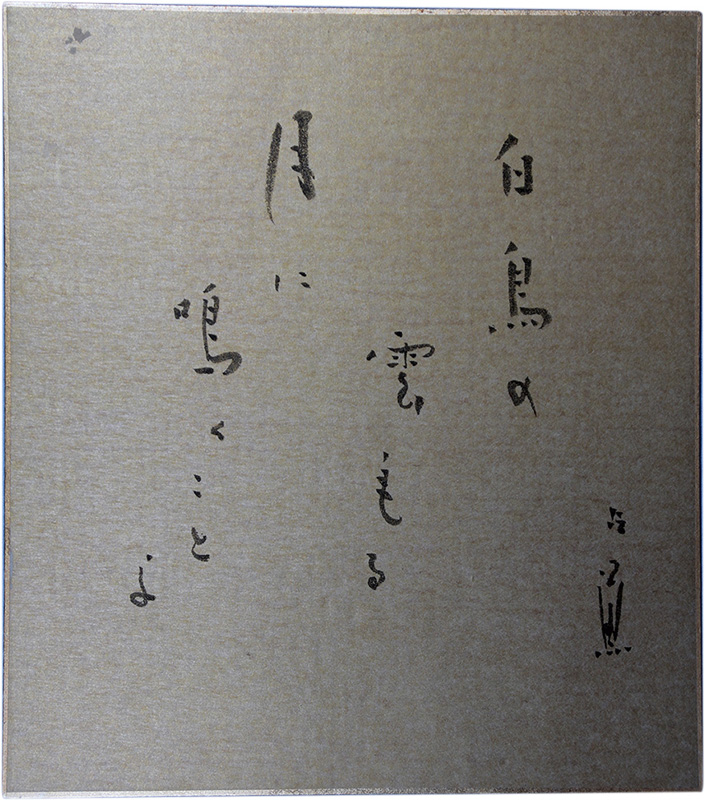 白鳥の
雲もる
月に
鳴くこと
よ